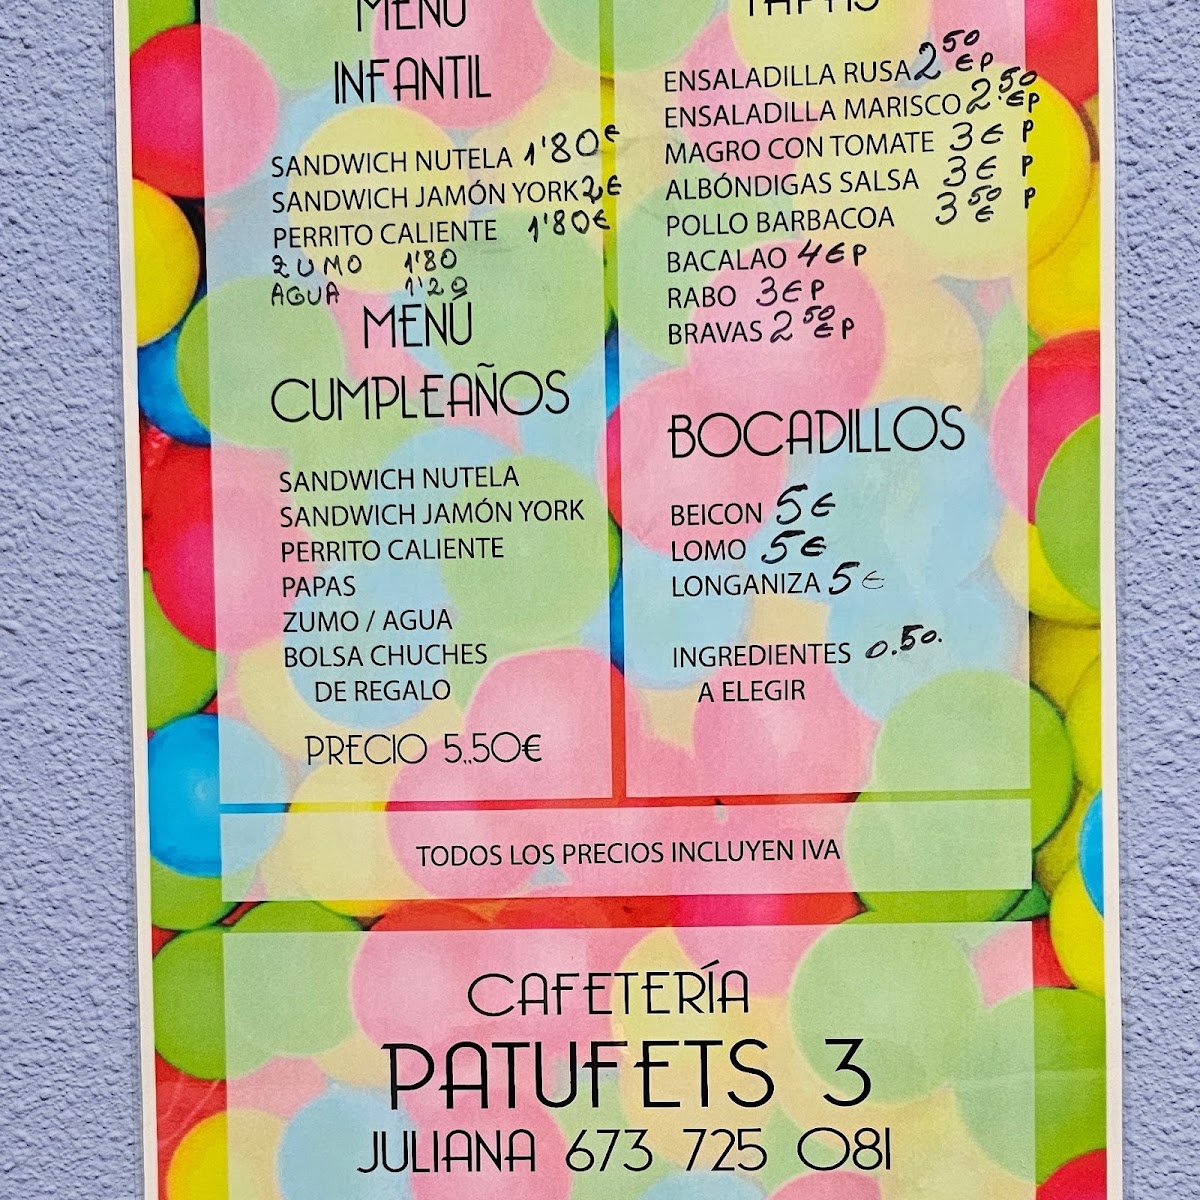 MENÚ
INFANTIL
SANDWICH NUTELA 1'80€
SANDWICH JAMÓN YORK 2€
PERRITO CALIENTE 1'80€
ZUMO 1'80
AGUA 1'20
MENÚ
CUMPLEAÑOS
SANDWICH NUTELA
SANDWICH JAMÓN YORK
PERRITO CALIENTE
PAPAS
ZUMO / AGUA
BOLSA CHUCHES
DE REGALO
PRECIO 5,,50€
TAPAS
ENSALADILLA RUSA 2 50 € P
ENSALADILLA MARISCO 2 50 € P
MAGRO CON TOMATE 3 € P
ALBÓNDIGAS SALSA 3 € P
POLLO BARBACOA 3 50 € P
BACALAO 4 € P
RABO 3 € P
BRAVAS 2 50 € P
BOCADILLOS
BEICON 5 €
LOMO 5 €
LONGANIZA 5 €
INGREDIENTES 0.50.
A ELEGIR
TODOS LOS PRECIOS INCLUYEN IVA
CAFETERÍA
PATUFETS 3
JULIANA 673 725 081